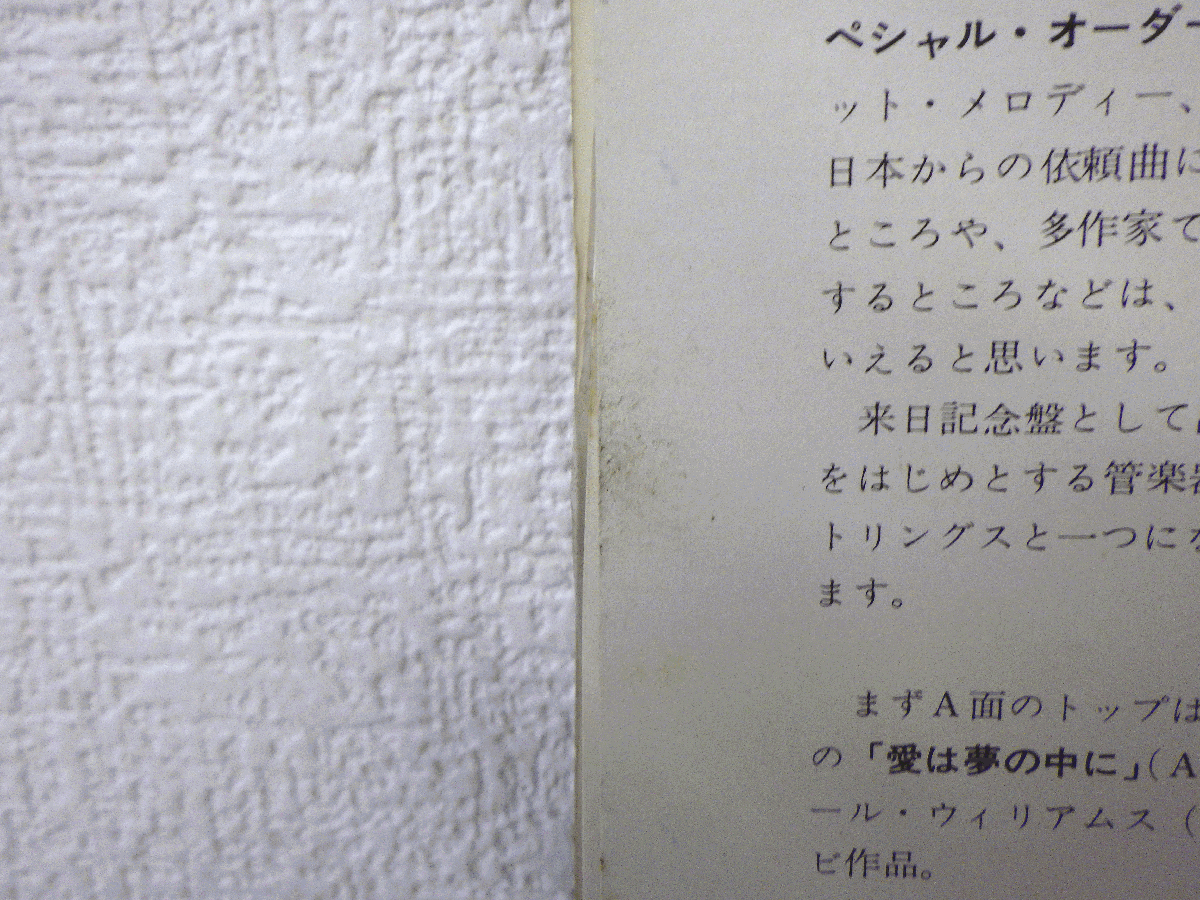 ペシャル・オーダー
ット・メロディー、
日本からの依頼曲に
ところや、多作家で
するところなどは、
いえると思います。
来日記念盤として
をはじめとする管楽器
トリングスと一つにな
ます。
まずA面のトップは
の「愛は夢の中に」（A
ール・ウィリアムス（
ビ作品。